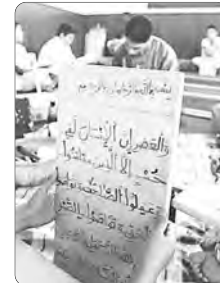 بسم الله الرحمن الرحيم
والعصر إن الإنسان لفي
خسر إلا الذين ءامنوا
وعملوا الصالحات وتواصوا
بالحق وتواصوا بالصبر